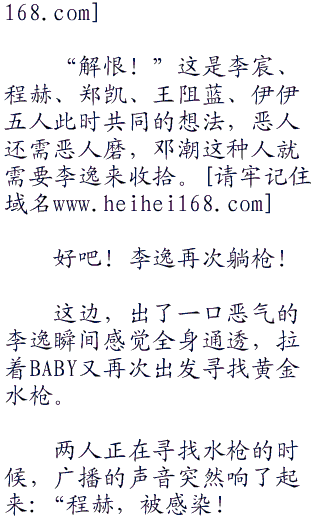 168.com]
“解恨！”这是李宸、
程赫、郑凯、王阻蓝、伊伊
五人此时共同的想法，恶人
还需恶人磨，邓潮这种人就
需要李逸来收拾。[请牢记住
域名www.heihei168.com]
好吧！李逸再次躺枪！
这边，出了一口恶气的
李逸瞬间感觉全身通透，拉
着BABY又再次出发寻找黄金
水枪。
两人正在寻找水枪的时
候，广播的声音突然响了起
来：“程赫，被感染！